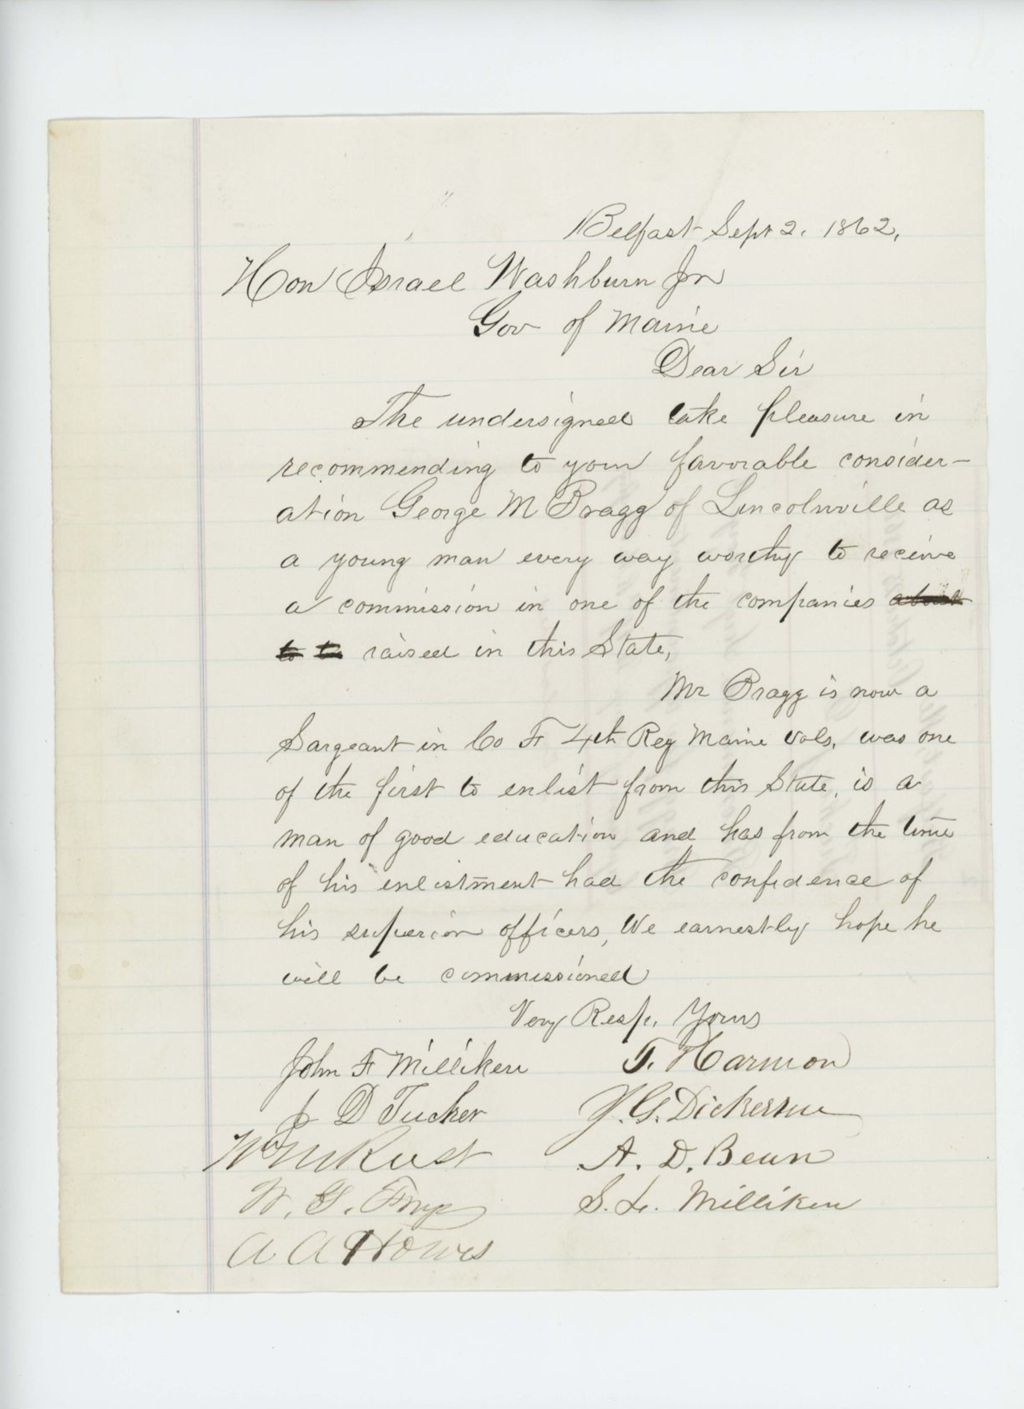 Belfast Sept 2. 1862,
Hon Israel Washburn Jr
Gov of Maine
Dear Sir
The undersigned take pleasure in
recommending to your favorable consider-
ation George M Bragg of Lincolnville as
a young man every way worthy to receive
a commission in one of the companies about
to be raised in this State,
Mr Bragg is now a
Sargeant in Co F 4th Reg Maine Vols, was one
of the first to enlist from this State, is a
man of good education and has from the time
of his enlistment had the confidence of
his superior officers, We earnestly hope he
will be commissioned
Very Resp. Yours
John F Milliken T. Harmon
J D Tucker J. G. Dickerson
Wm M Rust A. D. Bean
W. G. Frye S. L. Milliken
A A Howes